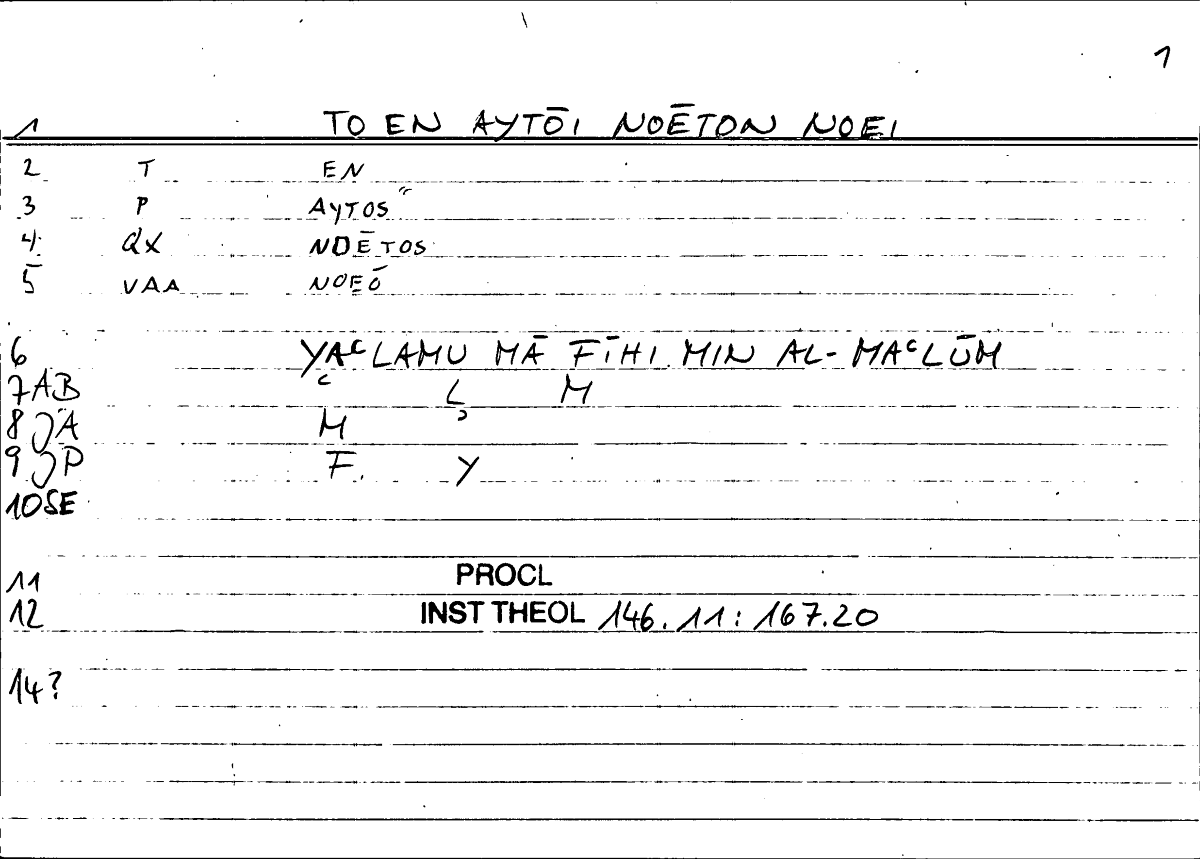 1
1 TO EN AYTŌI NOĒTON NOEI
2 T EN
3 P AYTOS
4 QX NOĒTOS
5 VAA NOEŌ
6 YAᶜLAMU MĀ FĪHI MIN AL-MAᶜLŪM
7AB ᶜ L M
8 JA M
9 JP F Y
10SE
11 PROCL
12 INST THEOL 146.11: 167.20
14?